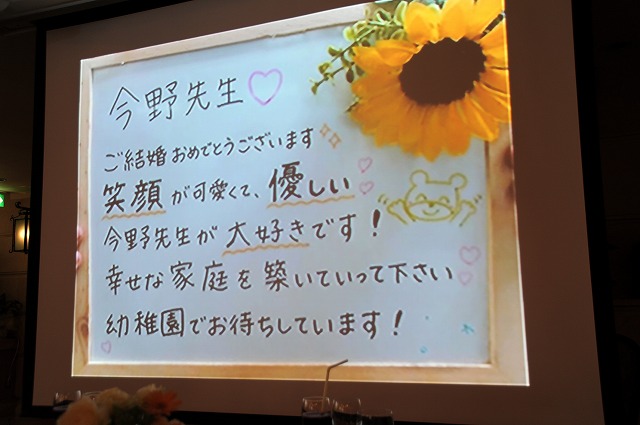 今野先生♡
ご結婚おめでとうございます
笑顔が可愛くて、優しい
今野先生が大好きです！
幸せな家庭を築いていって下さい
幼稚園でお待ちしています！